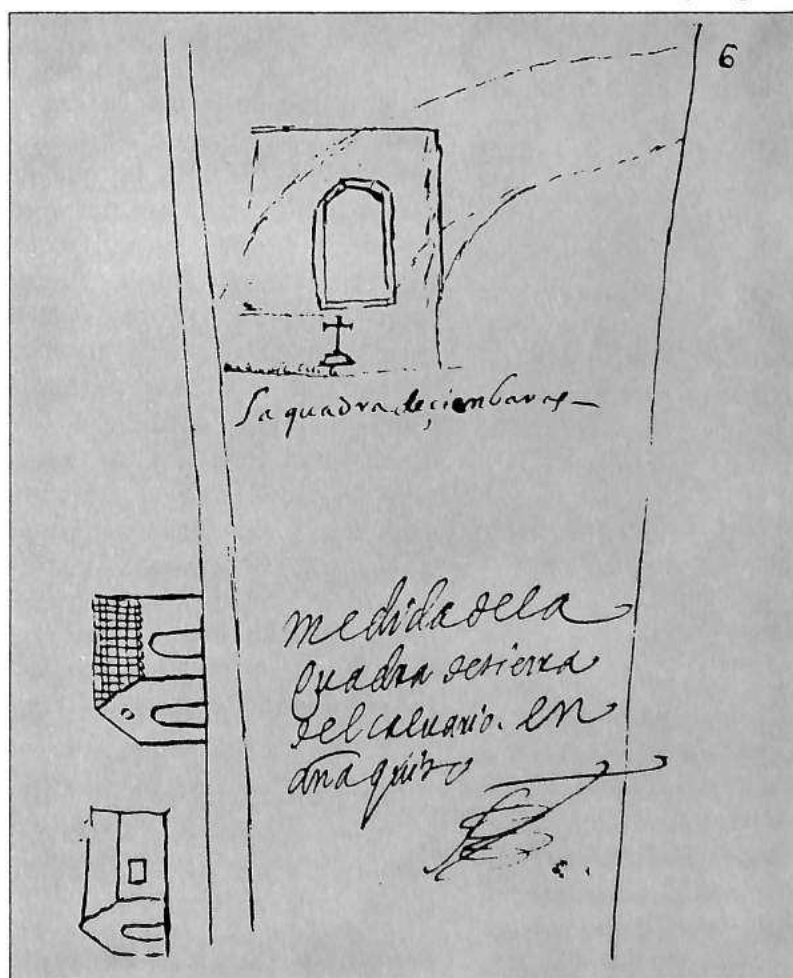 6
La quadra de çien baras
medida de la
quadra de tierra
del calvario. en
añaquito